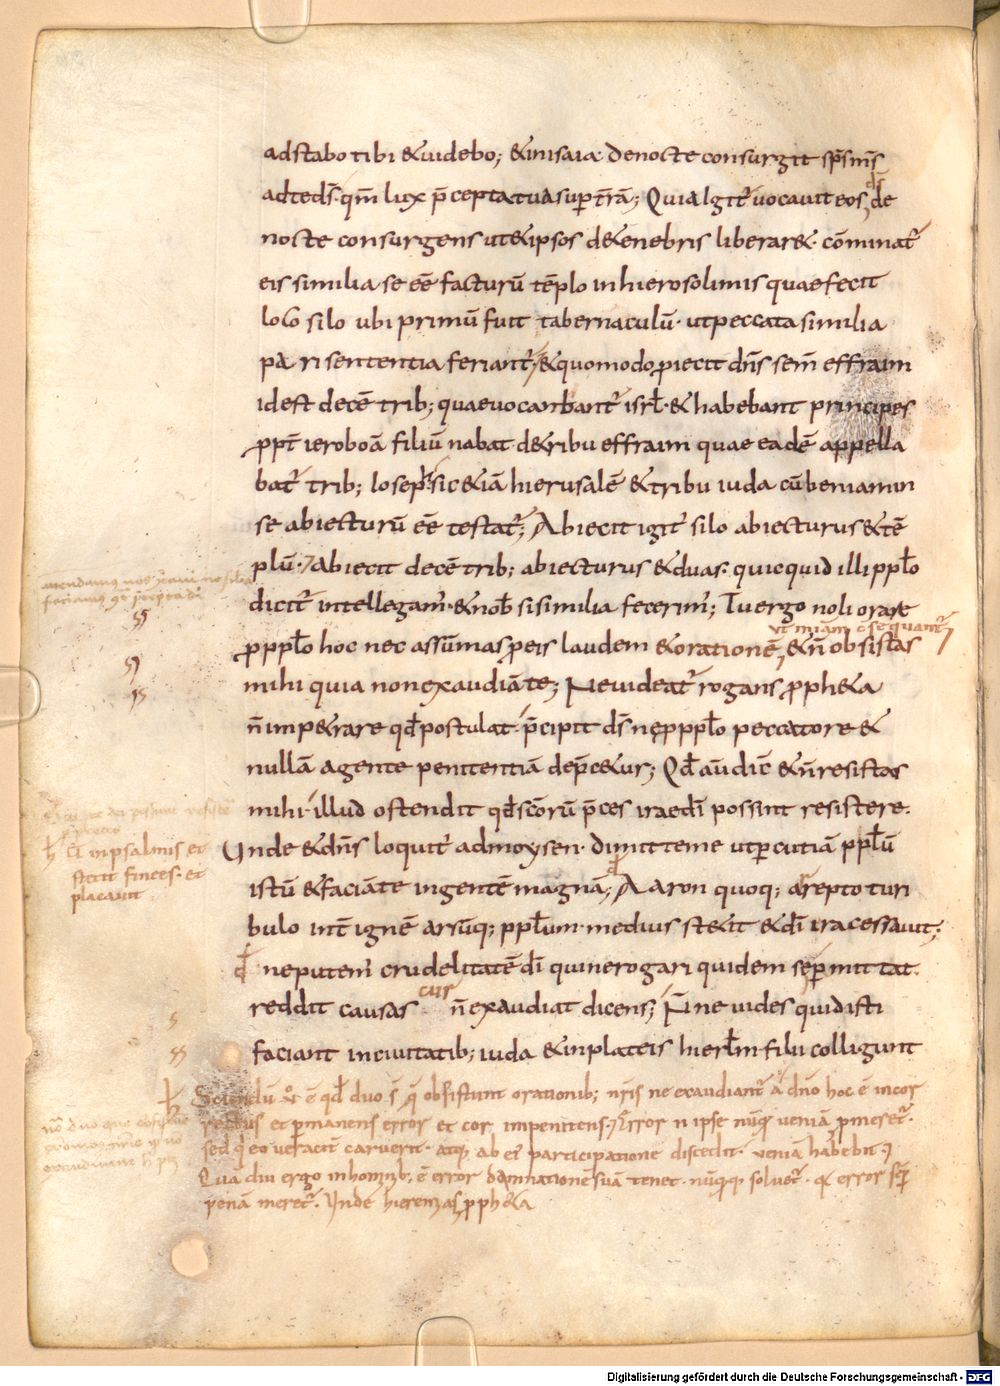 adstabo tibi &uidebo; &inisaia· Denocte consurgit sp̄s m̄s
adteds̄· qm̄ lux p̄cepta tua sup t̄rā; Quia Igit᷑ uocauit eos, de
ds̄
nocte consurgens ut&ipsos d&enebris liberar&· cōminat᷑
eis similia se eē facturū tēplo inhierosolimis quae fecit
loco silo ubi primū fuit tabernaculū· utpeccata similia
pari sententia feriant᷑, &quomodo ꝓiecit dn̄s sem̄ effraim
idest decē trib; quae uocanbant᷑ isrł· & habebant principes
ꝓpt̄ ieroboā filiū nabat· d&ribu effraim quae eadē appella
bat᷑ trib; Ioseph· sic &iā hierusalē &tribu iuda cū beniamin
se abiecturū eē testat᷑; Abiecit igit᷑ silo abiecturus &tē
plū· Abiecit decē trib; abiecturus &duas· quicquid illi ppło
dicit᷑ intellegam᷑ &nob̄ si similia fecerim᷑; Tu ergo noli orare
ꝓ ppło hoc nec assūmas ꝓ eis laudem &orationē, &n̄ obsistas
ut miām c̄sequant᷑
mihi quia non exaudiā te; Ne uideat᷑ rogans ꝓph&a
n̄ imp&rare qd̄ postulat· p̄cipit ds̄ ne ꝓ ppło peccatore &
nullā agente penitentiā dep̄c&ur; Qd̄ aūdic̄ &n̄ resistas
mihi· illud ostendit qd̄ sc̄orū p̄ces irae dī possint resistere·
Unde &dn̄s loquit᷑ admoysen· dimitte me ut percutiā ppłū
istū &faciā te in gentē magnā; Aaron quoq; arepto turi
bulo int̄ ignē arsūq; ppłum· medius st&it &dī ira cessauit;
ne putem᷑ crudelitatē dī qui ne rogari quidem se permittat·
reddit causas cur n̄ exaudiat dicens; Nn̄e uides quid isti
faciant in ciuitatib; iuda &in plateis hierłm· filii colligunt
ē qd̄ duo s̄ q̄ obsistunt orationib; nr̄is ne exaudiant᷑ a dn̄o hoc ē incor
rectus et permanens error et cor impenitens· Error n̄ ipse nūq̄ ueniā ꝓmeret᷑·
sed q̄ eo ueracit caruerit· atq; ab ei᷒ participatione discedit· ueniā habebit·
Quā diu ergo in homine ē error damnationē suā tenet· nūquā soluet᷑·
penā meret᷑· Unde hieremias ꝓph&a
Et in psalmis et
stetit finees· et
placauit·